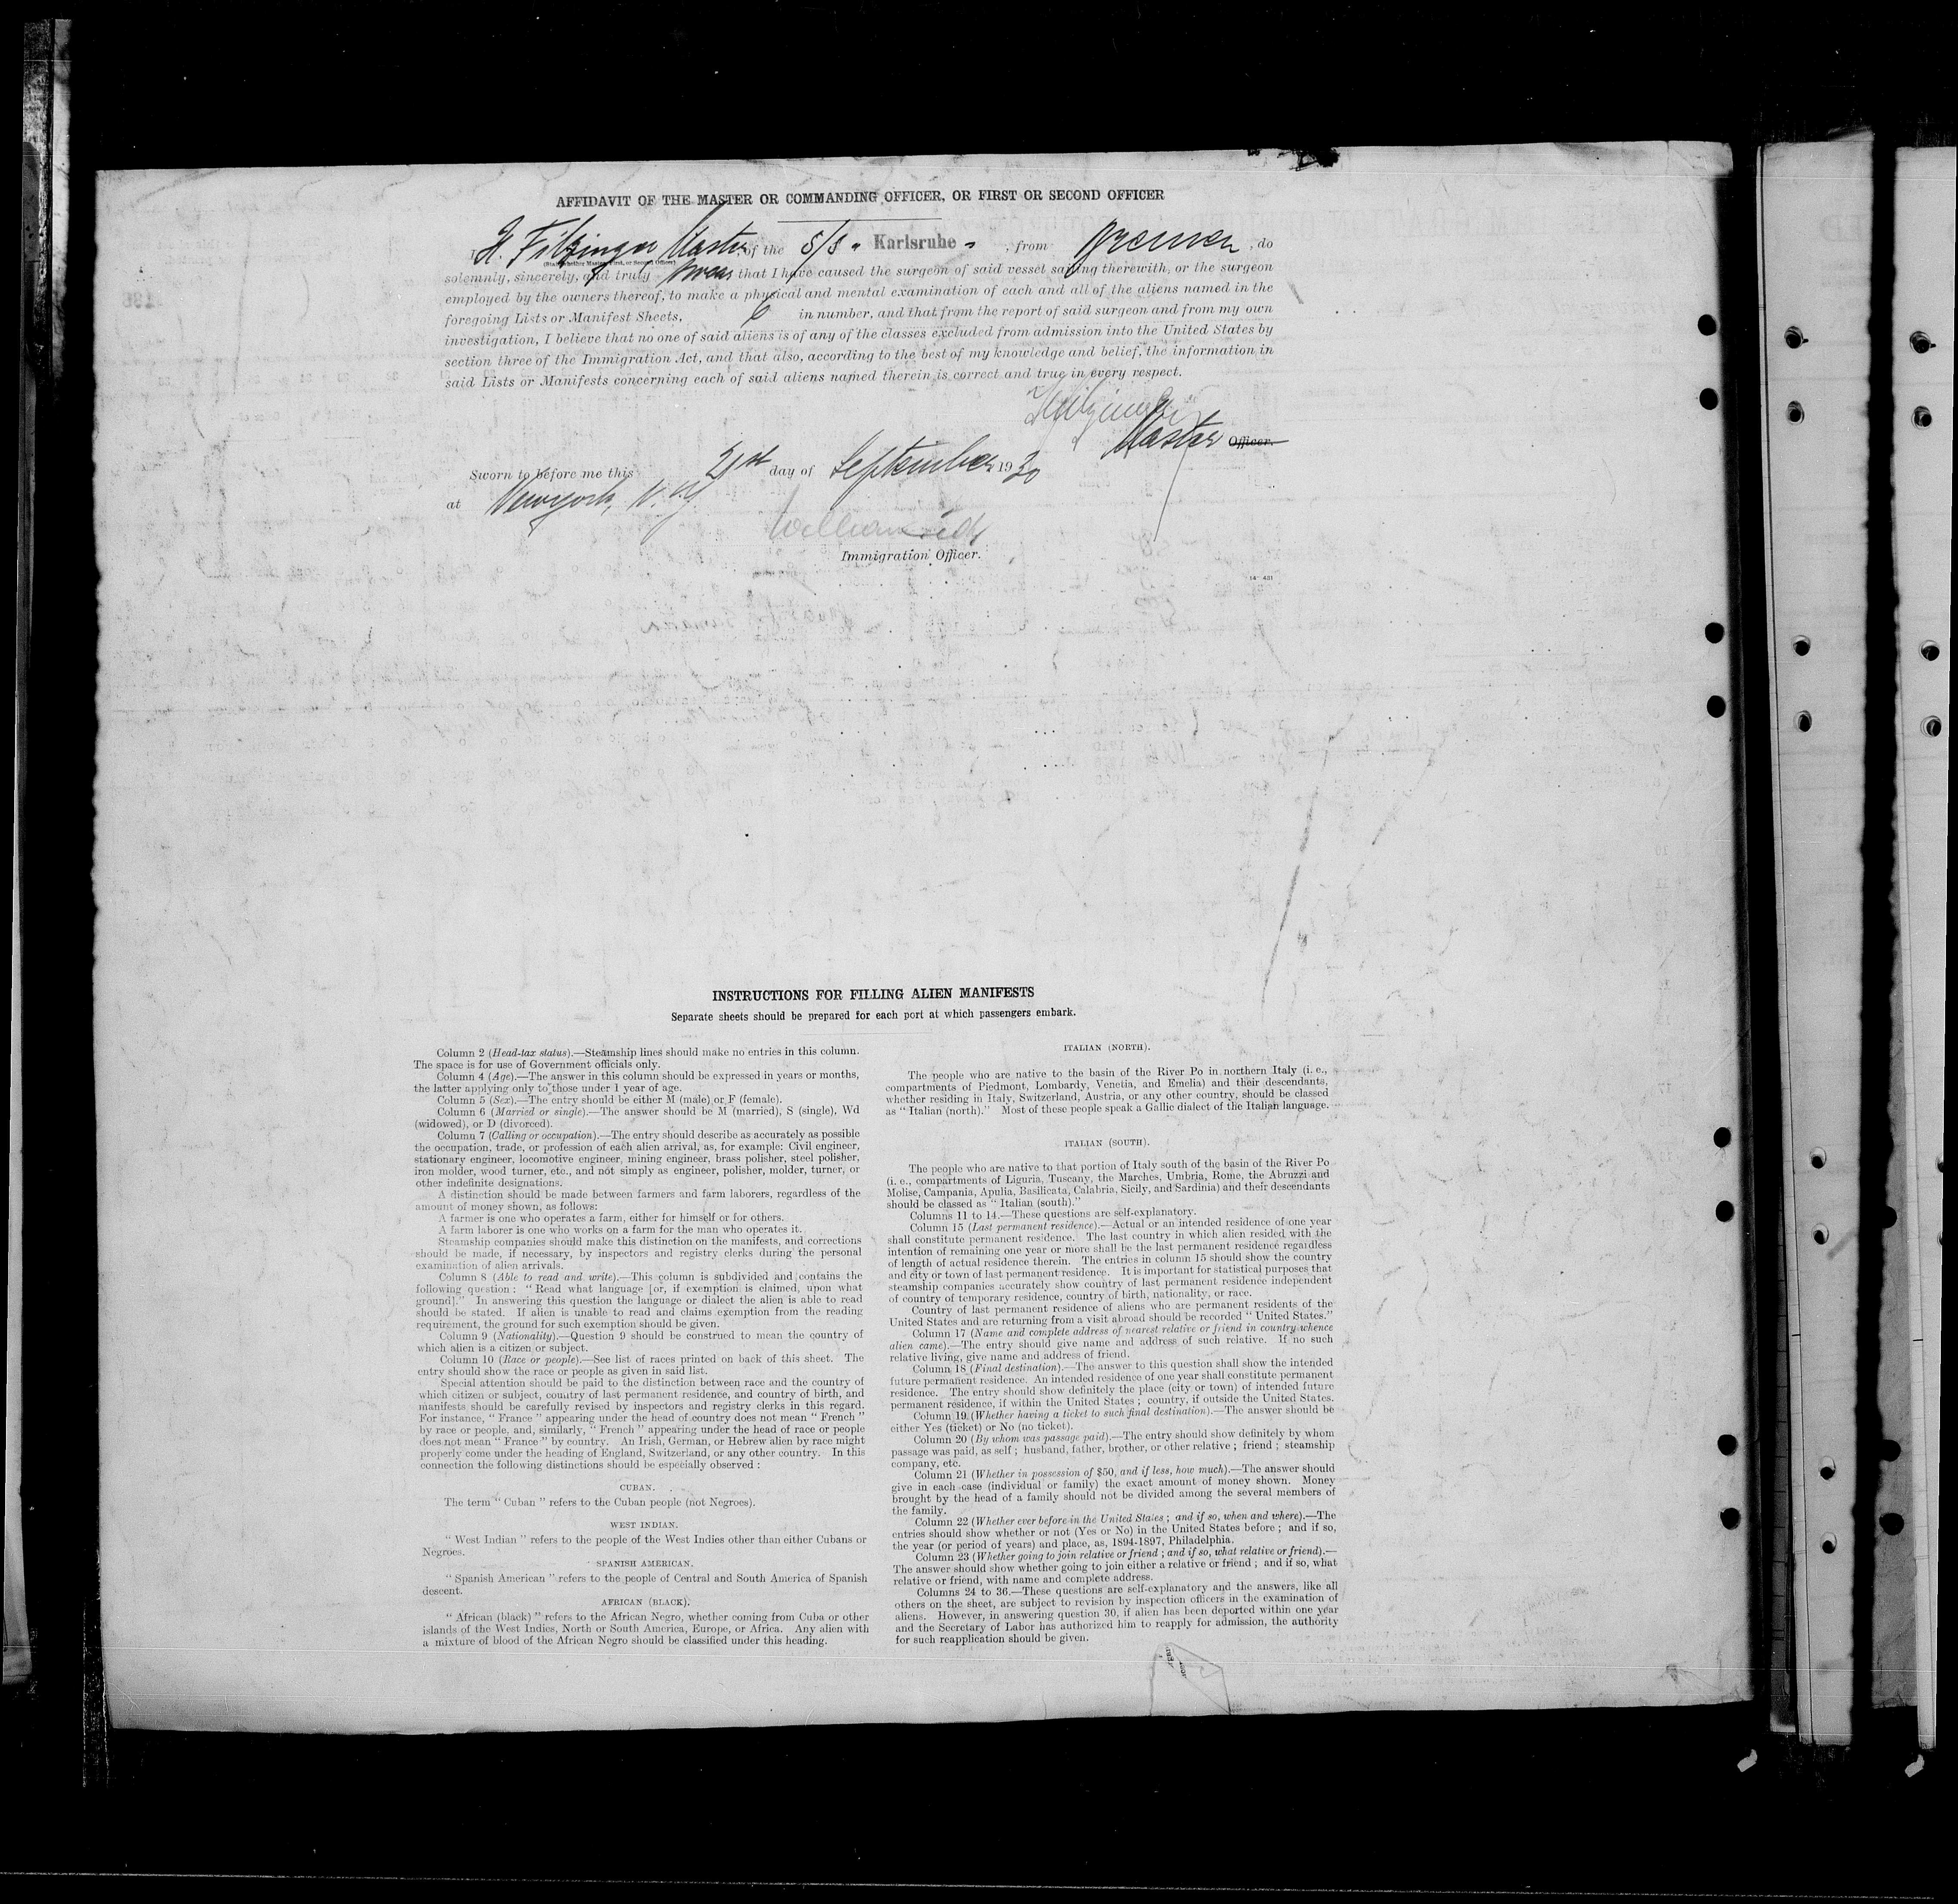 AFFIDAVIT OF THE MASTER OR COMMANDING OFFICER, OR FIRST OR SECOND OFFICER
I, H. Filzinger Master of the S/S " Karlsruhe " , from Bremen , do
(State whether Master, First, or Second Officer)
solemnly, sincerely, and truly swear that I have caused the surgeon of said vessel sailing therewith, or the surgeon
employed by the owners thereof, to make a physical and mental examination of each and all of the aliens named in the
foregoing Lists or Manifest Sheets, 6 in number, and that from the report of said surgeon and from my own
investigation, I believe that no one of said aliens is of any of the classes excluded from admission into the United States by
section three of the Immigration Act, and that also, according to the best of my knowledge and belief, the information in
said Lists or Manifests concerning each of said aliens named therein is correct and true in every respect.
Master Officer.
Sworn to before me this 21st day of September 1930
at Newyork, N.Y.
William
Immigration Officer.
14—431
INSTRUCTIONS FOR FILLING ALIEN MANIFESTS
Separate sheets should be prepared for each port at which passengers embark.
Column 2 (Head-tax status).—Steamship lines should make no entries in this column.
The space is for use of Government officials only.
Column 4 (Age).—The answer in this column should be expressed in years or months,
the latter applying only to those under 1 year of age.
Column 5 (Sex).—The entry should be either M (male) or F (female).
Column 6 (Married or single).—The answer should be M (married), S (single), Wd
(widowed), or D (divorced).
Column 7 (Calling or occupation).—The entry should describe as accurately as possible
the occupation, trade, or profession of each alien arrival, as, for example: Civil engineer,
stationary engineer, locomotive engineer, mining engineer, brass polisher, steel polisher,
iron molder, wood turner, etc., and not simply as engineer, polisher, molder, turner, or
other indefinite designations.
A distinction should be made between farmers and farm laborers, regardless of the
amount of money shown, as follows:
A farmer is one who operates a farm, either for himself or for others.
A farm laborer is one who works on a farm for the man who operates it.
Steamship companies should make this distinction on the manifests, and corrections
should be made, if necessary, by inspectors and registry clerks during the personal
examination of alien arrivals.
Column 8 (Able to read and write).—This column is subdivided and contains the
following question : " Read what language [or, if exemption is claimed, upon what
ground]." In answering this question the language or dialect the alien is able to read
should be stated. If alien is unable to read and claims exemption from the reading
requirement, the ground for such exemption should be given.
Column 9 (Nationality).—Question 9 should be construed to mean the country of
which alien is a citizen or subject.
Column 10 (Race or people).—See list of races printed on back of this sheet. The
entry should show the race or people as given in said list.
Special attention should be paid to the distinction between race and the country of
which citizen or subject, country of last permanent residence, and country of birth, and
manifests should be carefully revised by inspectors and registry clerks in this regard.
For instance, " France " appearing under the head of country does not mean " French "
by race or people, and, similarly, " French " appearing under the head of race or people
does not mean " France " by country. An Irish, German, or Hebrew alien by race might
properly come under the heading of England, Switzerland, or any other country. In this
connection the following distinctions should be especially observed :
CUBAN.
The term " Cuban " refers to the Cuban people (not Negroes).
WEST INDIAN.
" West Indian " refers to the people of the West Indies other than either Cubans or
Negroes.
SPANISH AMERICAN.
" Spanish American " refers to the people of Central and South America of Spanish
descent.
AFRICAN (BLACK).
" African (black) " refers to the African Negro, whether coming from Cuba or other
islands of the West Indies, North or South America, Europe, or Africa. Any alien with
a mixture of blood of the African Negro should be classified under this heading.
ITALIAN (NORTH).
The people who are native to the basin of the River Po in northern Italy (i. e.,
compartments of Piedmont, Lombardy, Venetia, and Emelia) and their descendants,
whether residing in Italy, Switzerland, Austria, or any other country, should be classed
as " Italian (north)." Most of these people speak a Gallic dialect of the Italian language.
ITALIAN (SOUTH).
The people who are native to that portion of Italy south of the basin of the River Po
(i. e., compartments of Liguria, Tuscany, the Marches, Umbria, Rome, the Abruzzi and
Molise, Campania, Apulia, Basilicata, Calabria, Sicily, and Sardinia) and their descendants
should be classed as " Italian (south)."
Columns 11 to 14.—These questions are self-explanatory.
Column 15 (Last permanent residence).—Actual or an intended residence of one year
shall constitute permanent residence. The last country in which alien resided with the
intention of remaining one year or more shall be the last permanent residence regardless
of length of actual residence therein. The entries in column 15 should show the country
and city or town of last permanent residence. It is important for statistical purposes that
steamship companies accurately show country of last permanent residence independent
of country of temporary residence, country of birth, nationality, or race.
Country of last permanent residence of aliens who are permanent residents of the
United States and are returning from a visit abroad should be recorded " United States."
Column 17 (Name and complete address of nearest relative or friend in country whence
alien came).—The entry should give name and address of such relative. If no such
relative living, give name and address of friend.
Column 18 (Final destination).—The answer to this question shall show the intended
future permanent residence. An intended residence of one year shall constitute permanent
residence. The entry should show definitely the place (city or town) of intended future
permanent residence, if within the United States ; country, if outside the United States.
Column 19 (Whether having a ticket to such final destination).—The answer should be
either Yes (ticket) or No (no ticket).
Column 20 (By whom was passage paid).—The entry should show definitely by whom
passage was paid, as self ; husband, father, brother, or other relative ; friend ; steamship
company, etc.
Column 21 (Whether in possession of $50, and if less, how much).—The answer should
give in each case (individual or family) the exact amount of money shown. Money
brought by the head of a family should not be divided among the several members of
the family.
Column 22 (Whether ever before in the United States ; and if so, when and where).—The
entries should show whether or not (Yes or No) in the United States before ; and if so,
the year (or period of years) and place, as, 1894-1897, Philadelphia.
Column 23 (Whether going to join relative or friend ; and if so, what relative or friend).—
The answer should show whether going to join either a relative or friend ; and if so, what
relative or friend, with name and complete address.
Columns 24 to 36.—These questions are self-explanatory and the answers, like all
others on the sheet, are subject to revision by inspection officers in the examination of
aliens. However, in answering question 30, if alien has been deported within one year
and the Secretary of Labor has authorized him to reapply for admission, the authority
for such reapplication should be given.